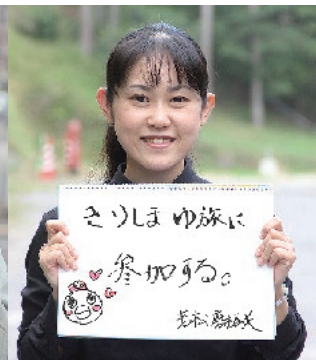 きりしまゆ旅に
参加する。